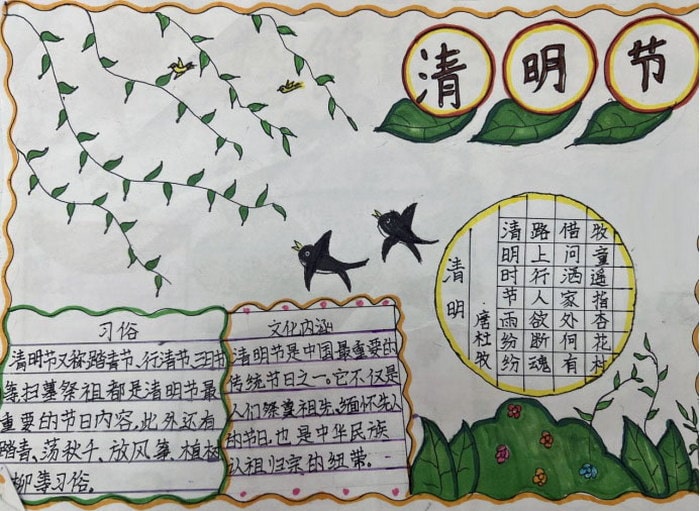 清明节
习俗
清明节又称踏青节、行清节、三月节
等扫墓祭祖都是清明节最
重要的节日内容,此外还有
踏青、荡秋千、放风筝、植树
柳等习俗。
文化内涵
清明节是中国最重要的
传统节日之一。它不仅是
人们祭奠祖先、缅怀先人
的节日,也是中华民族
认祖归宗的纽带。
清明
唐杜牧
清明时节雨纷纷
路上行人欲断魂
借问洒家外何有
牧童遥指杏花村